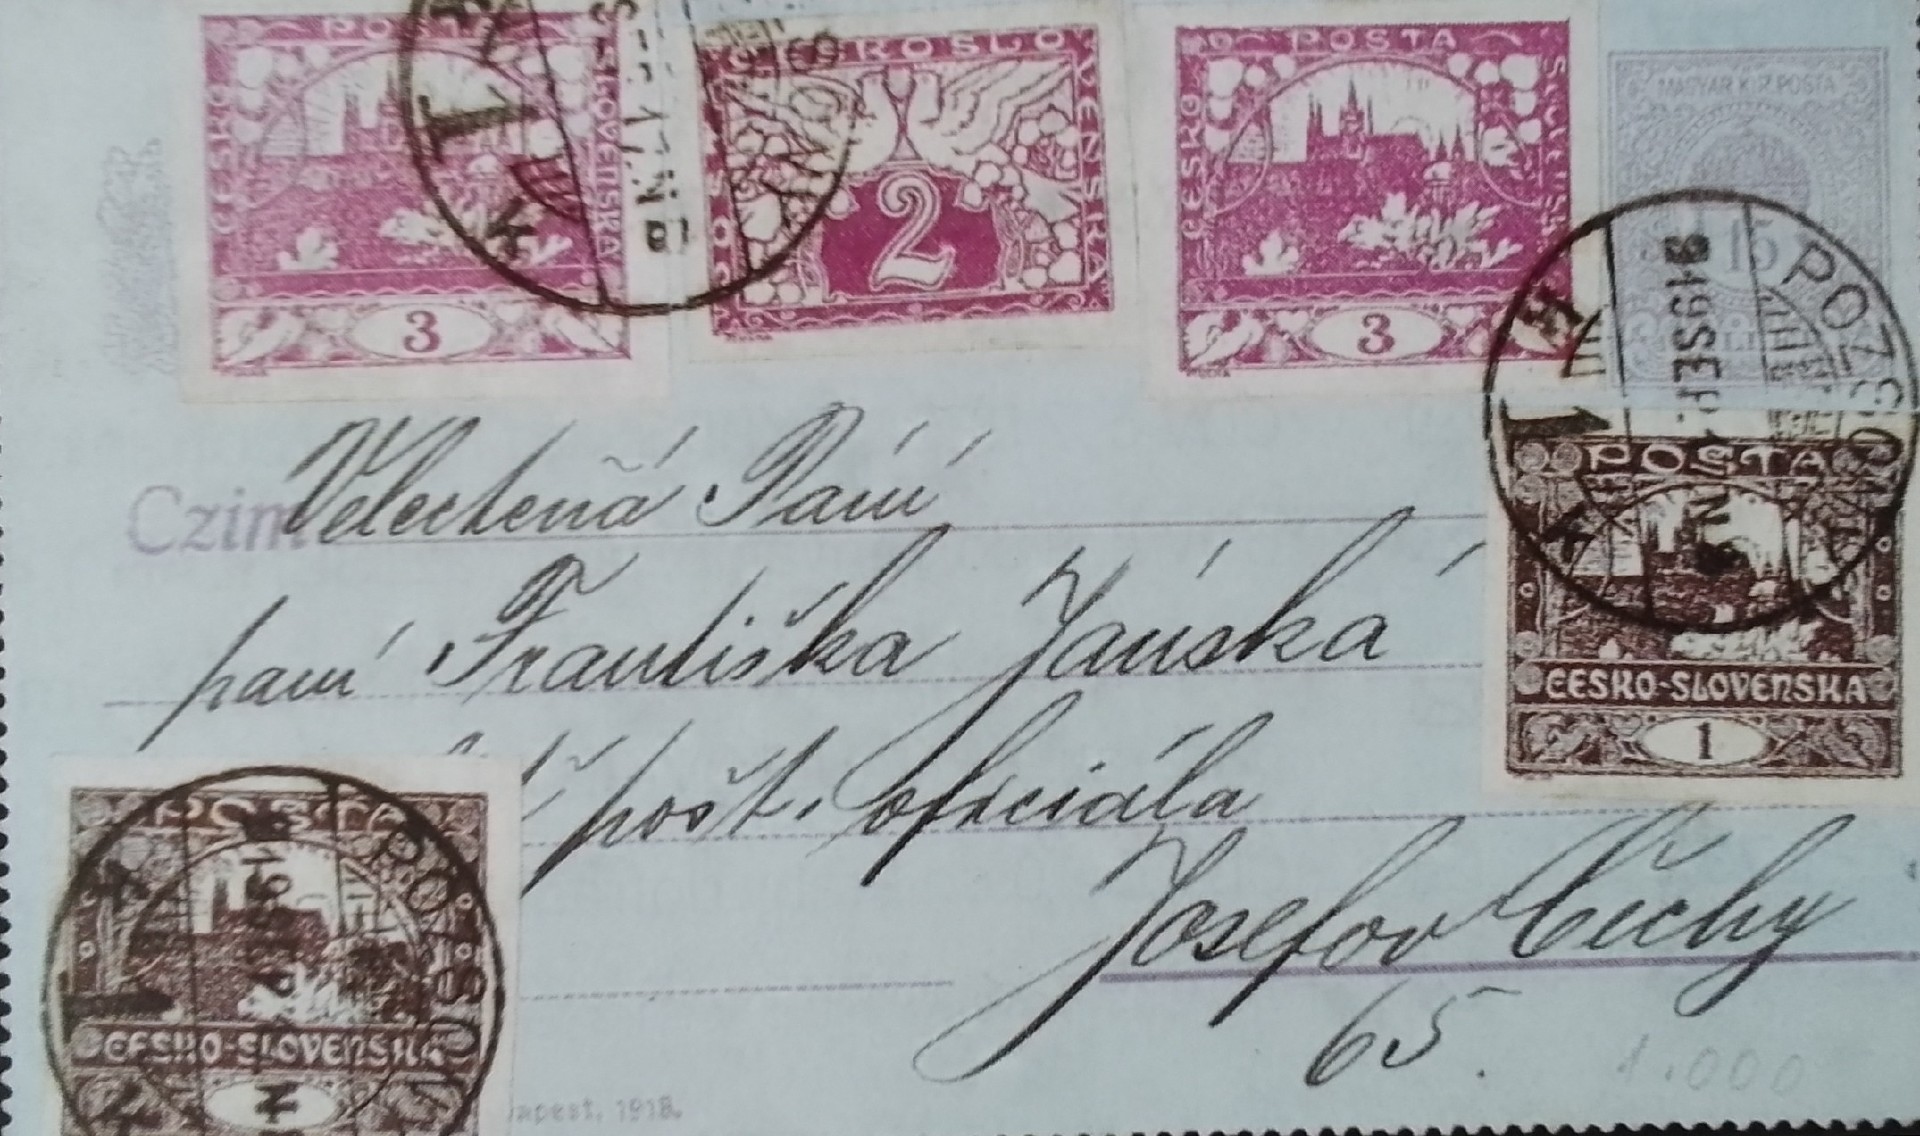 POSTA
ČESKO
SLOVENSKA
3
ČESKOSLOVENSKA
2
POSTA
ČESKO
SLOVENSKA
3
MAGYAR KIR. POSTA
15
POZSO
919 SEP.
Czim
Velectěná Paní
paní Františka Jánská
pošt. oficiála
Josefov Čechy
65.
POSTA
ČESKO-SLOVENSKA
1
POSTA
ČESKO-SLOVENSKA
POZSON
apest, 1918.
1.000